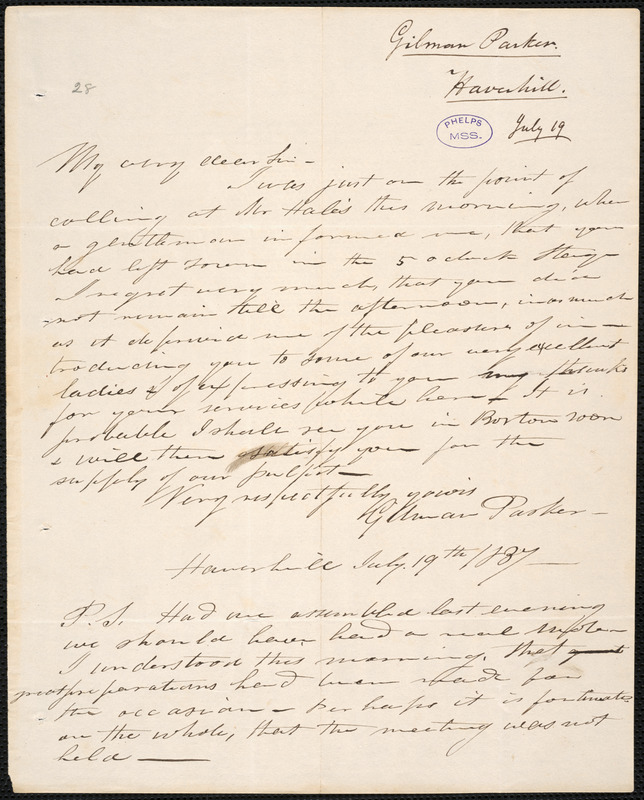 Gilman Parker.
Haverhill.
July 19
28
PHELPS
MSS.
My very dear Sir -
I was just on the point of
calling at Mr Hale's this morning, when
a gentleman informed me, that you
had left town in the 5 oclock Stage
I regret very much, that you did
not remain till the afternoon, inasmuch
as it deprived me of the pleasure of in-
troducing you to some of our very excellent
ladies & of expressing to you my thanks
for your services while here - It is
probable I shall see you in Boston soon
& will then satisfy you for the
supply of our pulpit -
Very respectfully yours
Gilman Parker -
Haverhill July. 19th 1837 -
P.S. Had we assembled last evening
we should have had a real
I understood this morning, that
great preparations had been made for
the occasion - Perhaps it is fortunate
on the whole, that the meeting was not
held -